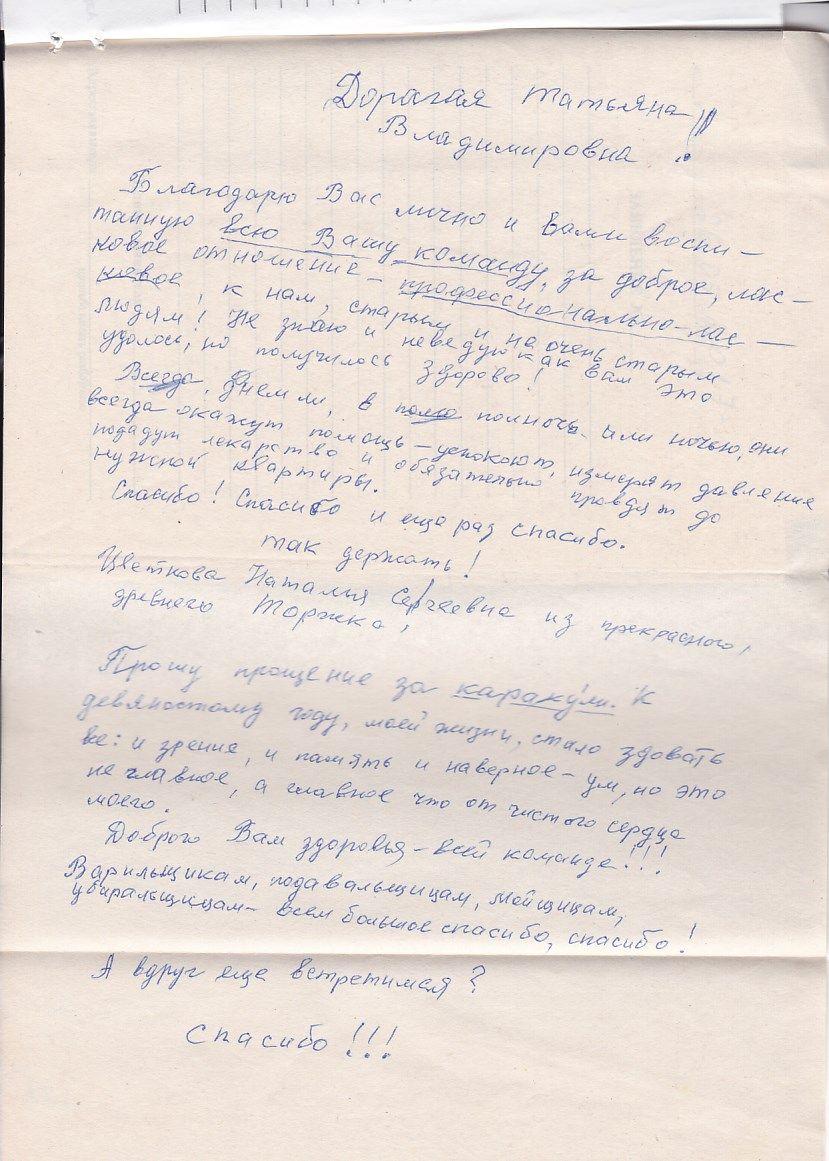 Дорагая Татьяна
Владимировна !!!
Благодарю Вас лично и Вами воспи-
танную всю Вашу команду, за доброе, лас-
ковое отношение - профессионально-лас-
ковое, к нам, старым и не очень старым
людям! Не знаю и неведую как Вам это
удалось, но получилось Здорово!
Всегда, Днем ли, в полно полночь или ночью, они
всегда окажут помощь - успокоют, измерят давление
подадут лекарство и обязательно провдят до
нужной квартиры.
Спасибо! Спасибо и еще раз спасибо.
Так держать!
Цветкова Наталия Сергеевна из прекрасного,
древнего Торжка,
Прошу прощение за каракули. К
девяностому году, моей жизни, стало здовать
все: и зрение, и память и наверное - ум, но это
не главное, а главное что от чистого сердца
моего.
Доброго Вам здоровья - всей команде!!!
Варильщикам, подавальщицам, мойщицам,
убиральщицам - всем большое спасибо, спасибо!
А вдруг еще встретимся?
Спасибо!!!